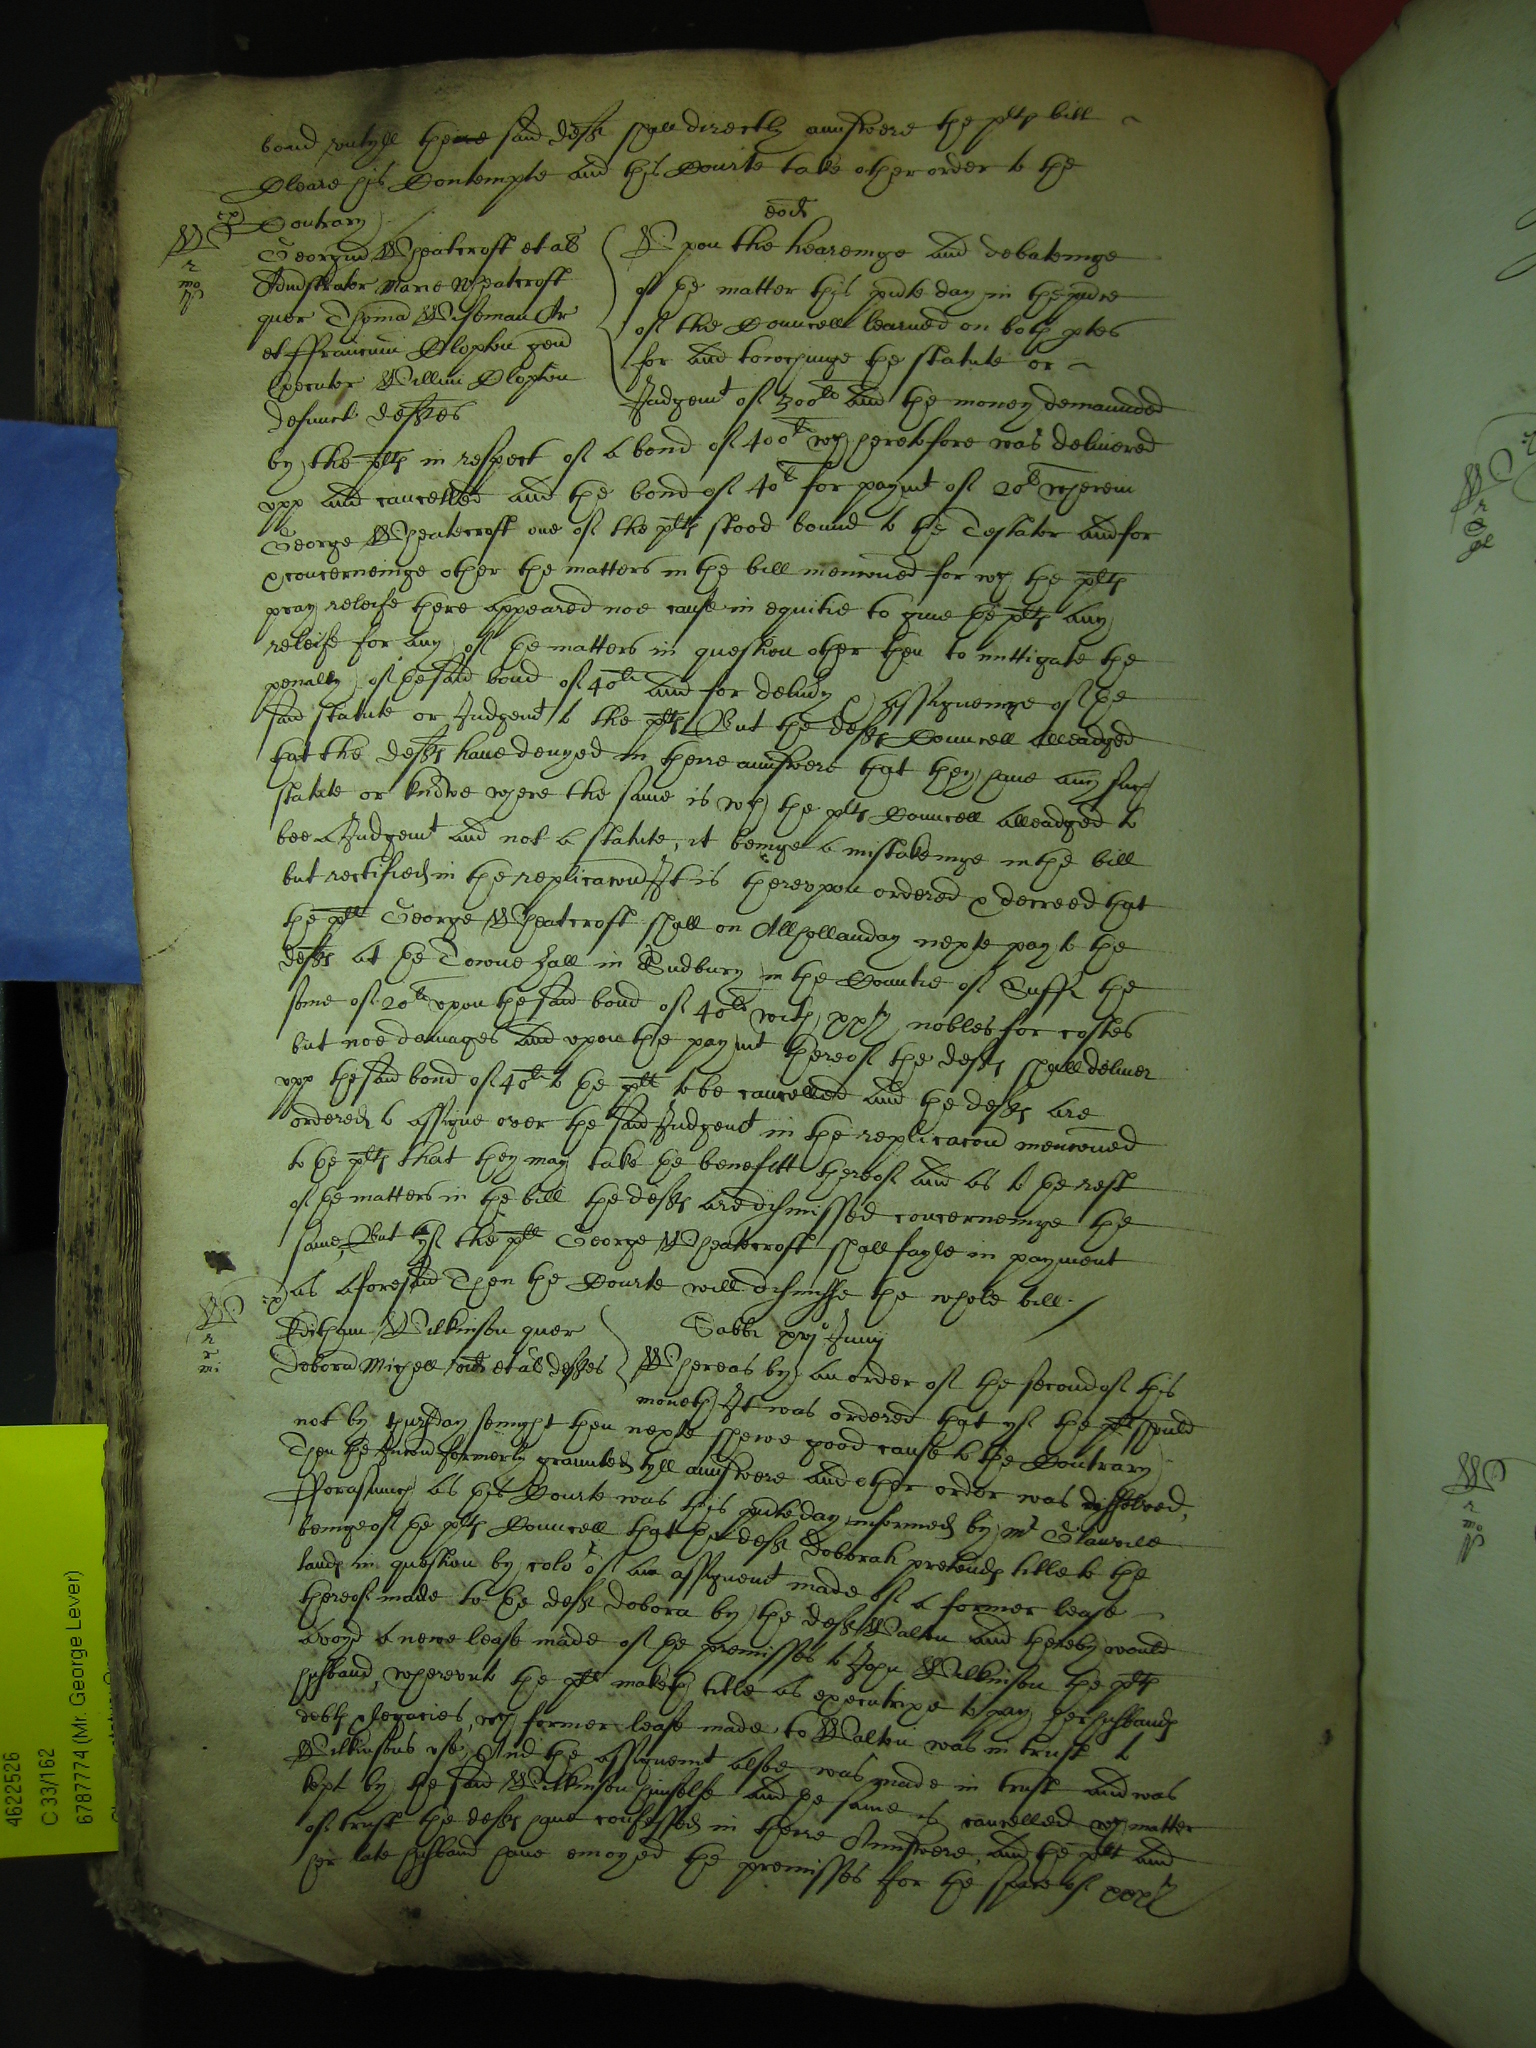 bond vntyll the said deft shall directly aunswere the plts bill
Cleare his Contempte and this Courte take other order to the
Contrary
eod
Georgiu Wheatcroft et als
Admstrator Marie Wheatcroft
quer Thoma Wiseman Ar
et ffranciscu Clopton gen
executor Willmi Clopton
defunct defftes
Vpon the hearinge and debateinge
of the matter this pnte day in the pnce
of the Councell learned on both ptes
for and towchinge the statute or
Judgemt of 300li and the money demaunded
by the plts in respect of a bond of 400li wch heretofore was deliuered
vpp and cancelled and the bond of 40li for paymt of 20li wherein
George Wheatecroft one of the plts stood bound to the Testator and for
& concerneinge other the matters in the bill mencioned for wch the plts
pray releife there appeared noe cause in equitie to giue the plts any
releife for any of the matters in question other then to mittigate the
penalty of the said bond of 40li and for deliuy & assigneinge of the
said statute or Judgemt to the plts But the defts Councell alleadged
that the defts haue denyed in theire aunswere that they haue any such
statute or knowe where the same is wch the plts Councell alleadged to
bee a Judgemt and not a statute, it beinge a mistakeinge in the bill
but rectified in the replicacon It is therevpon ordered & decreed that
the plt George Wheatcroft shall on Allhollanday nexte pay to the
defts at the Towne hall in Sudbury in the Countie of Suff the
some of 20li vpon the said bond of 40li with nobles for costes
but noe damages and vpon the paymt thereof the defts shall deliuer
vpp the said bond of 40li to the plt to be cancelled and the defts are
ordered to assigne over the said Judgemt in the replicacon mencioned
to the plts that they may take the benefitt thereof and as to the rest
of the matters in the bill the defts are dismissed concerneinge the
same, But yf the plt George Wheatecroft shall fayle in payment
as aforesaid Then the Courte will dismisse the whole bill
Editham Wilkinson quer
Debora Michell vid et als deftes
Sabbi xvjo Junij
Whereas by an order of the second of this
moneth It was ordered that yf the plt should
not by thursday senight then nexte shewe good cause to the Contrary
Then the Iniuncon formerly graunted tyll aunswere and other order was dissolved,
fforasmuch as this Courte was this pnte day informed by Mr Glanvile
beinge of the plts Councell that the deft Deborah pretends title to the
lands in question by color of an assignemt made of a former lease
thereof made to the deft Debora by the deft Walton and thereby would
avoyd a newe lease made of the premisses to John Wilkinson the plts
husband, wherevnto the plt maketh title as executrixe to pay her husbands
debts & legacies, wch former lease made to Walton was in trust to
Wilkinsons vse And the assignemt alsoe was made in trust and was
kept by the said Wilkinson himselfe and the same is cancelled wch matter
of trust the defts haue confessed in theire Aunswere, and the plt and
her late husband haue enioyed the premisses for the space of
4622526
C 33/162
6787774 (Mr. George Lever)